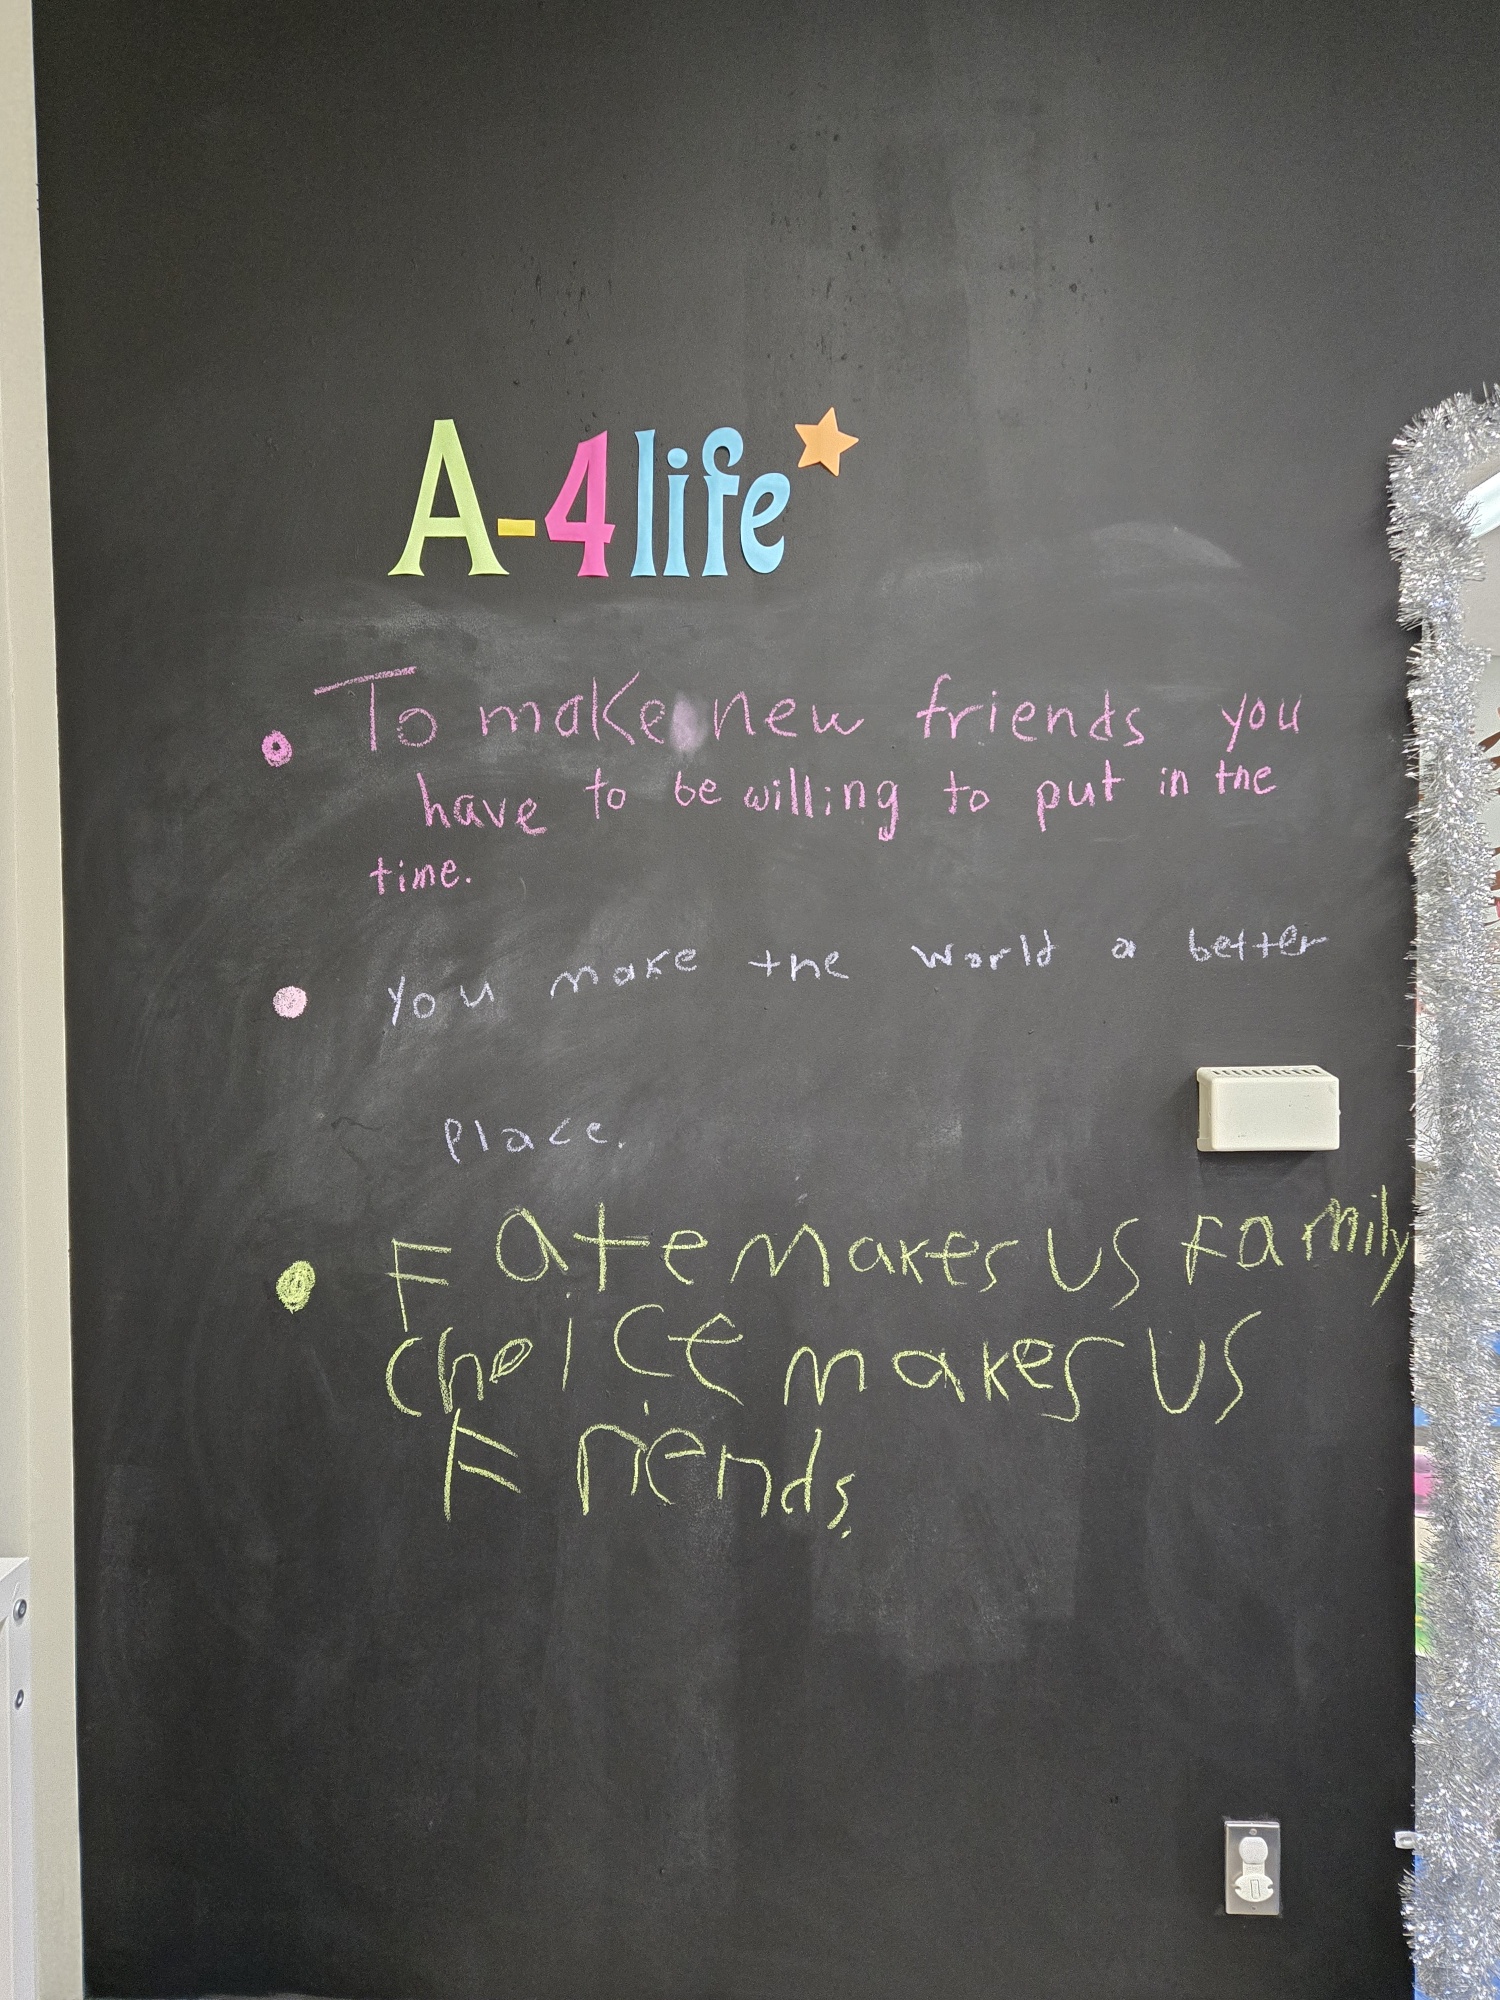 A-4life
• To make new friends you
have to be willing to put in the
time.
• you make the world a better
place.
• Fate makes us family
choice makes us
Friends.